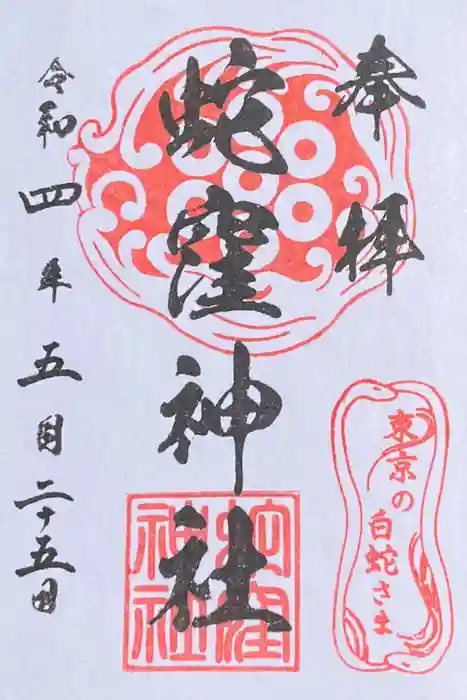 奉拝
蛇窪神社
令和四年五月二十五日
東京の
白蛇さま
蛇窪
神社